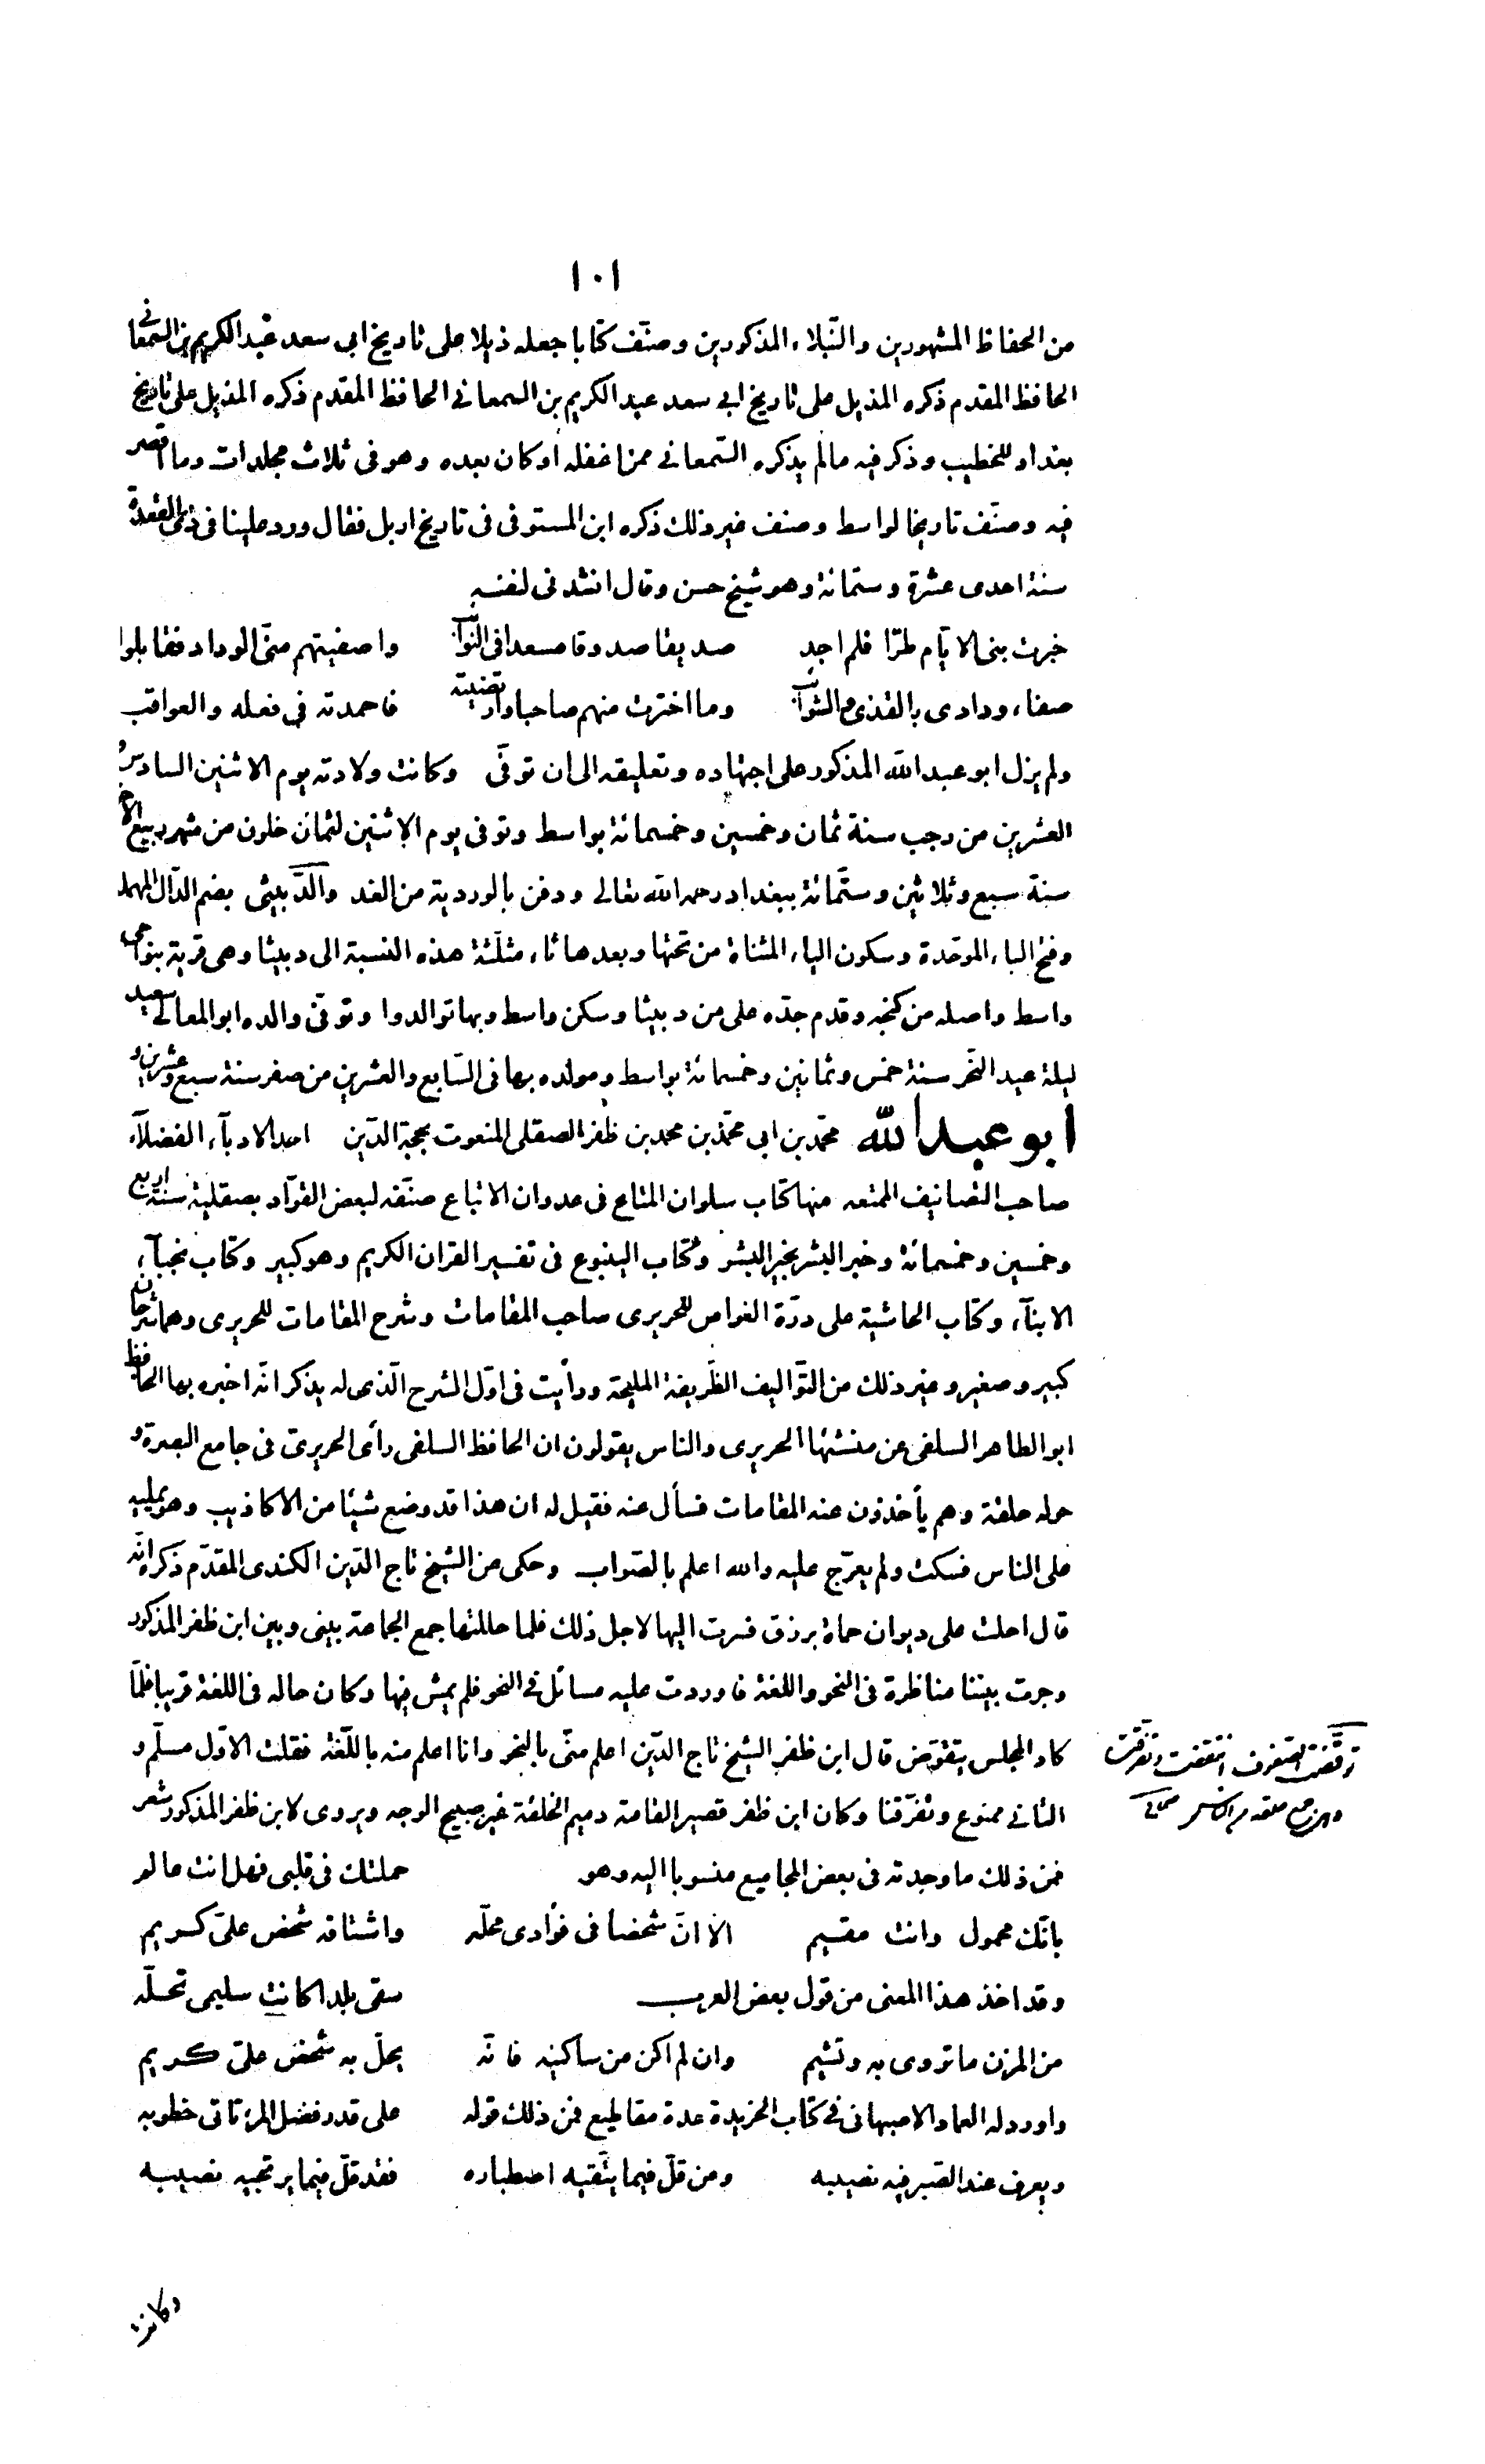 ١٠١
من الحفاظ المشهورين والنّبلاء المذكورين وصنّف كتابا جعله ذيلا على تاريخ ابى سعد عبد الكريم بن السّمعانى
الحافظ المقدم ذكره المذيل على تاريخ ابى سعد عبد الكريم بن السمعانى الحافظ المقدم ذكره المذيل على تاريخ
بغداد للخطيب وذكر فيه مالم يذكره السّمعانى ممن اغفله أو كان بعده وهو فى ثلاث مجلدات وما اقصر
فيه وصنّف تاريخا لواسط وصنف غير ذلك ذكره ابن المستوفى فى تاريخ اربل فقال ورد علينا فى ذى القعدة
سنة احدى عشرة وستمائة وهو شيخ حسن وقال انشدنى لنفسه
خبرت بنى الايّام طرّا فلم اجد صديقا صدوقا مسعدا فى النّوائب واصفيتهم منّى الوداد فقابلوا
صفاء ودادى بالقذى والشّوائب وما اخترت منهم صاحبا وارتضيته فاحمدته فى فعله والعواقب
ولم يزل ابو عبد الله المذكور على اجتهاده وتعليقه الى ان توفّى وكانت ولادته يوم الاثنين السادس و
العشرين من رجب سنة ثمان وخمسين وخمسمائة بواسط وتوفى يوم الاثنين لثمان خلون من شهر ربيع الاخر
سنة سبع وثلاثين وستّمائة ببغداد رحمه الله تعالى ودفن بالوردية من الغد والدّبيثى بضم الدّال المهملة
وفتح الباء الموحّدة وسكون الياء المثناة من تحتها وبعدها ثاء مثلّثة هذه النسبة الى دبيثا وهى قرية بنواحى
واسط واصله من كنجه وقدم جدّه على من دبيثا وسكن واسط وبها توالدوا وتوفّى والده ابو المعالى سعيد
ليلة عيد النّحر سنة خمس وثمانين وخمسمائة بواسط ومولده بها فى السّابع والعشرين من صفر سنة سبع وعشرين و
ابو عبد الله محمّد بن ابى محمّد بن محمد بن ظفر الصقلى المنعوت بحجة الدّين احد الادبآء الفضلآء
صاحب التصانيف الممتعه منها كتاب سلوان المتاع فى عدوان الاتباع صنّفه لبعض القوّاد بصقلية سنة اربع
وخمسين وخمسمائة وخير البشر بخير البشر وكتاب الينبوع فى تفسير القران الكريم وهو كبير وكتاب نجبآء
الابنآء وكتاب الحاشية على درّة الغواص للحريرى صاحب المقامات وشرح المقامات للحريرى وهما شرحان
كبير وصغير وغير ذلك من التّواليف الظّريفة المليحة ورأيت فى اوّل الشرح الّذى له يذكر انّه اخبره بها الحافظ
ابو الطاهر السلفى عن منشئها الحريرى والناس يقولون ان الحافظ السلفى رأى الحريرىّ فى جامع البصرة و
حوله حلقة وهم يأخذون عنه المقامات فسأل عنه فقيل له ان هذا قد وضع شيئا من الاكاذيب وهو يمليه
على الناس فسكت ولم يعرّج عليه والله اعلم بالصّواب وحكى عن الشيخ تاج الدّين الكندى المقدّم ذكره انّه
قال احلت على ديوان حماة برزق فسرت اليها لاجل ذلك فلما حللتها جمع الجماعة بينى وبين ابن ظفر المذكور
وجرت بيننا مناظرة فى النحو واللغة فاوردت عليه مسائل فى النحو فلم يمش فيها وكان حاله فى اللغة قريبا فلمّا
كاد المجلس يتقوّض قال ابن ظفر الشيخ تاج الدّين اعلم منّى بالنحو وانا اعلم منه باللّغة فقلت الاوّل مسلّم و
الثانى ممنوع وتفرّقنا وكان ابن ظفر قصير القامة دميم الخلقة غير صبيح الوجه ويروى لابن ظفر المذكور شعر
فمن ذلك ما وجدته فى بعض المجاميع منسوبا اليه وهو حملتك فى قلبى فهل انت عالم
بانّك محمول وانت مقيم الا انّ شخصا فى فؤادى محلّه واشتاقه شخص علىّ كريم
وقد اخذ هذا المعنى من قول بعض العرب سقى بلدا كانت سليمى تحلّه
من المزن ما تروى به وتشيم وان لم اكن من ساكنيه فانّه يحلّ به شخص علىّ كريم
واورد له العماد الاصبهانى فى كتاب الخريدة عدة مقاطيع فمن ذلك قوله على قدر فضل المرء تاتى خطوبه
ويعرف عند الصّبر فيه نصيبه ومن قلّ فيما يتّقيه اصطباره فقد قلّ فيما يرتجيه نصيبه
تقوّضت الصفوف انتقضت وتفرّقت
وكانت